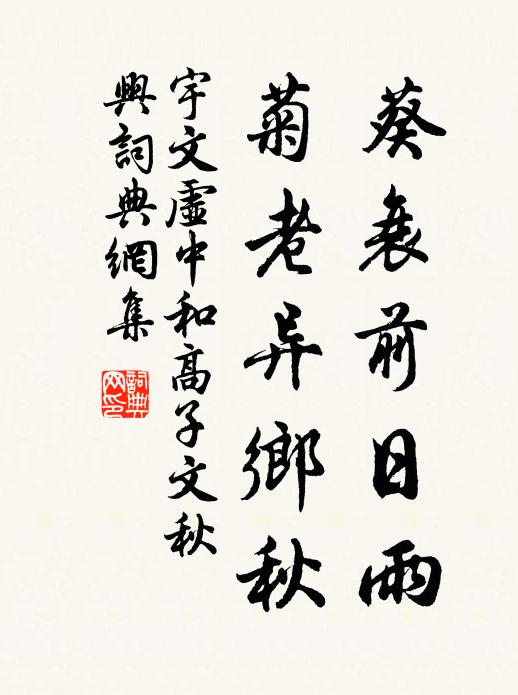 葵衰前日雨
菊老异鄉秋
宇文虛中和高子文秋
興詞典網集
詞典網印